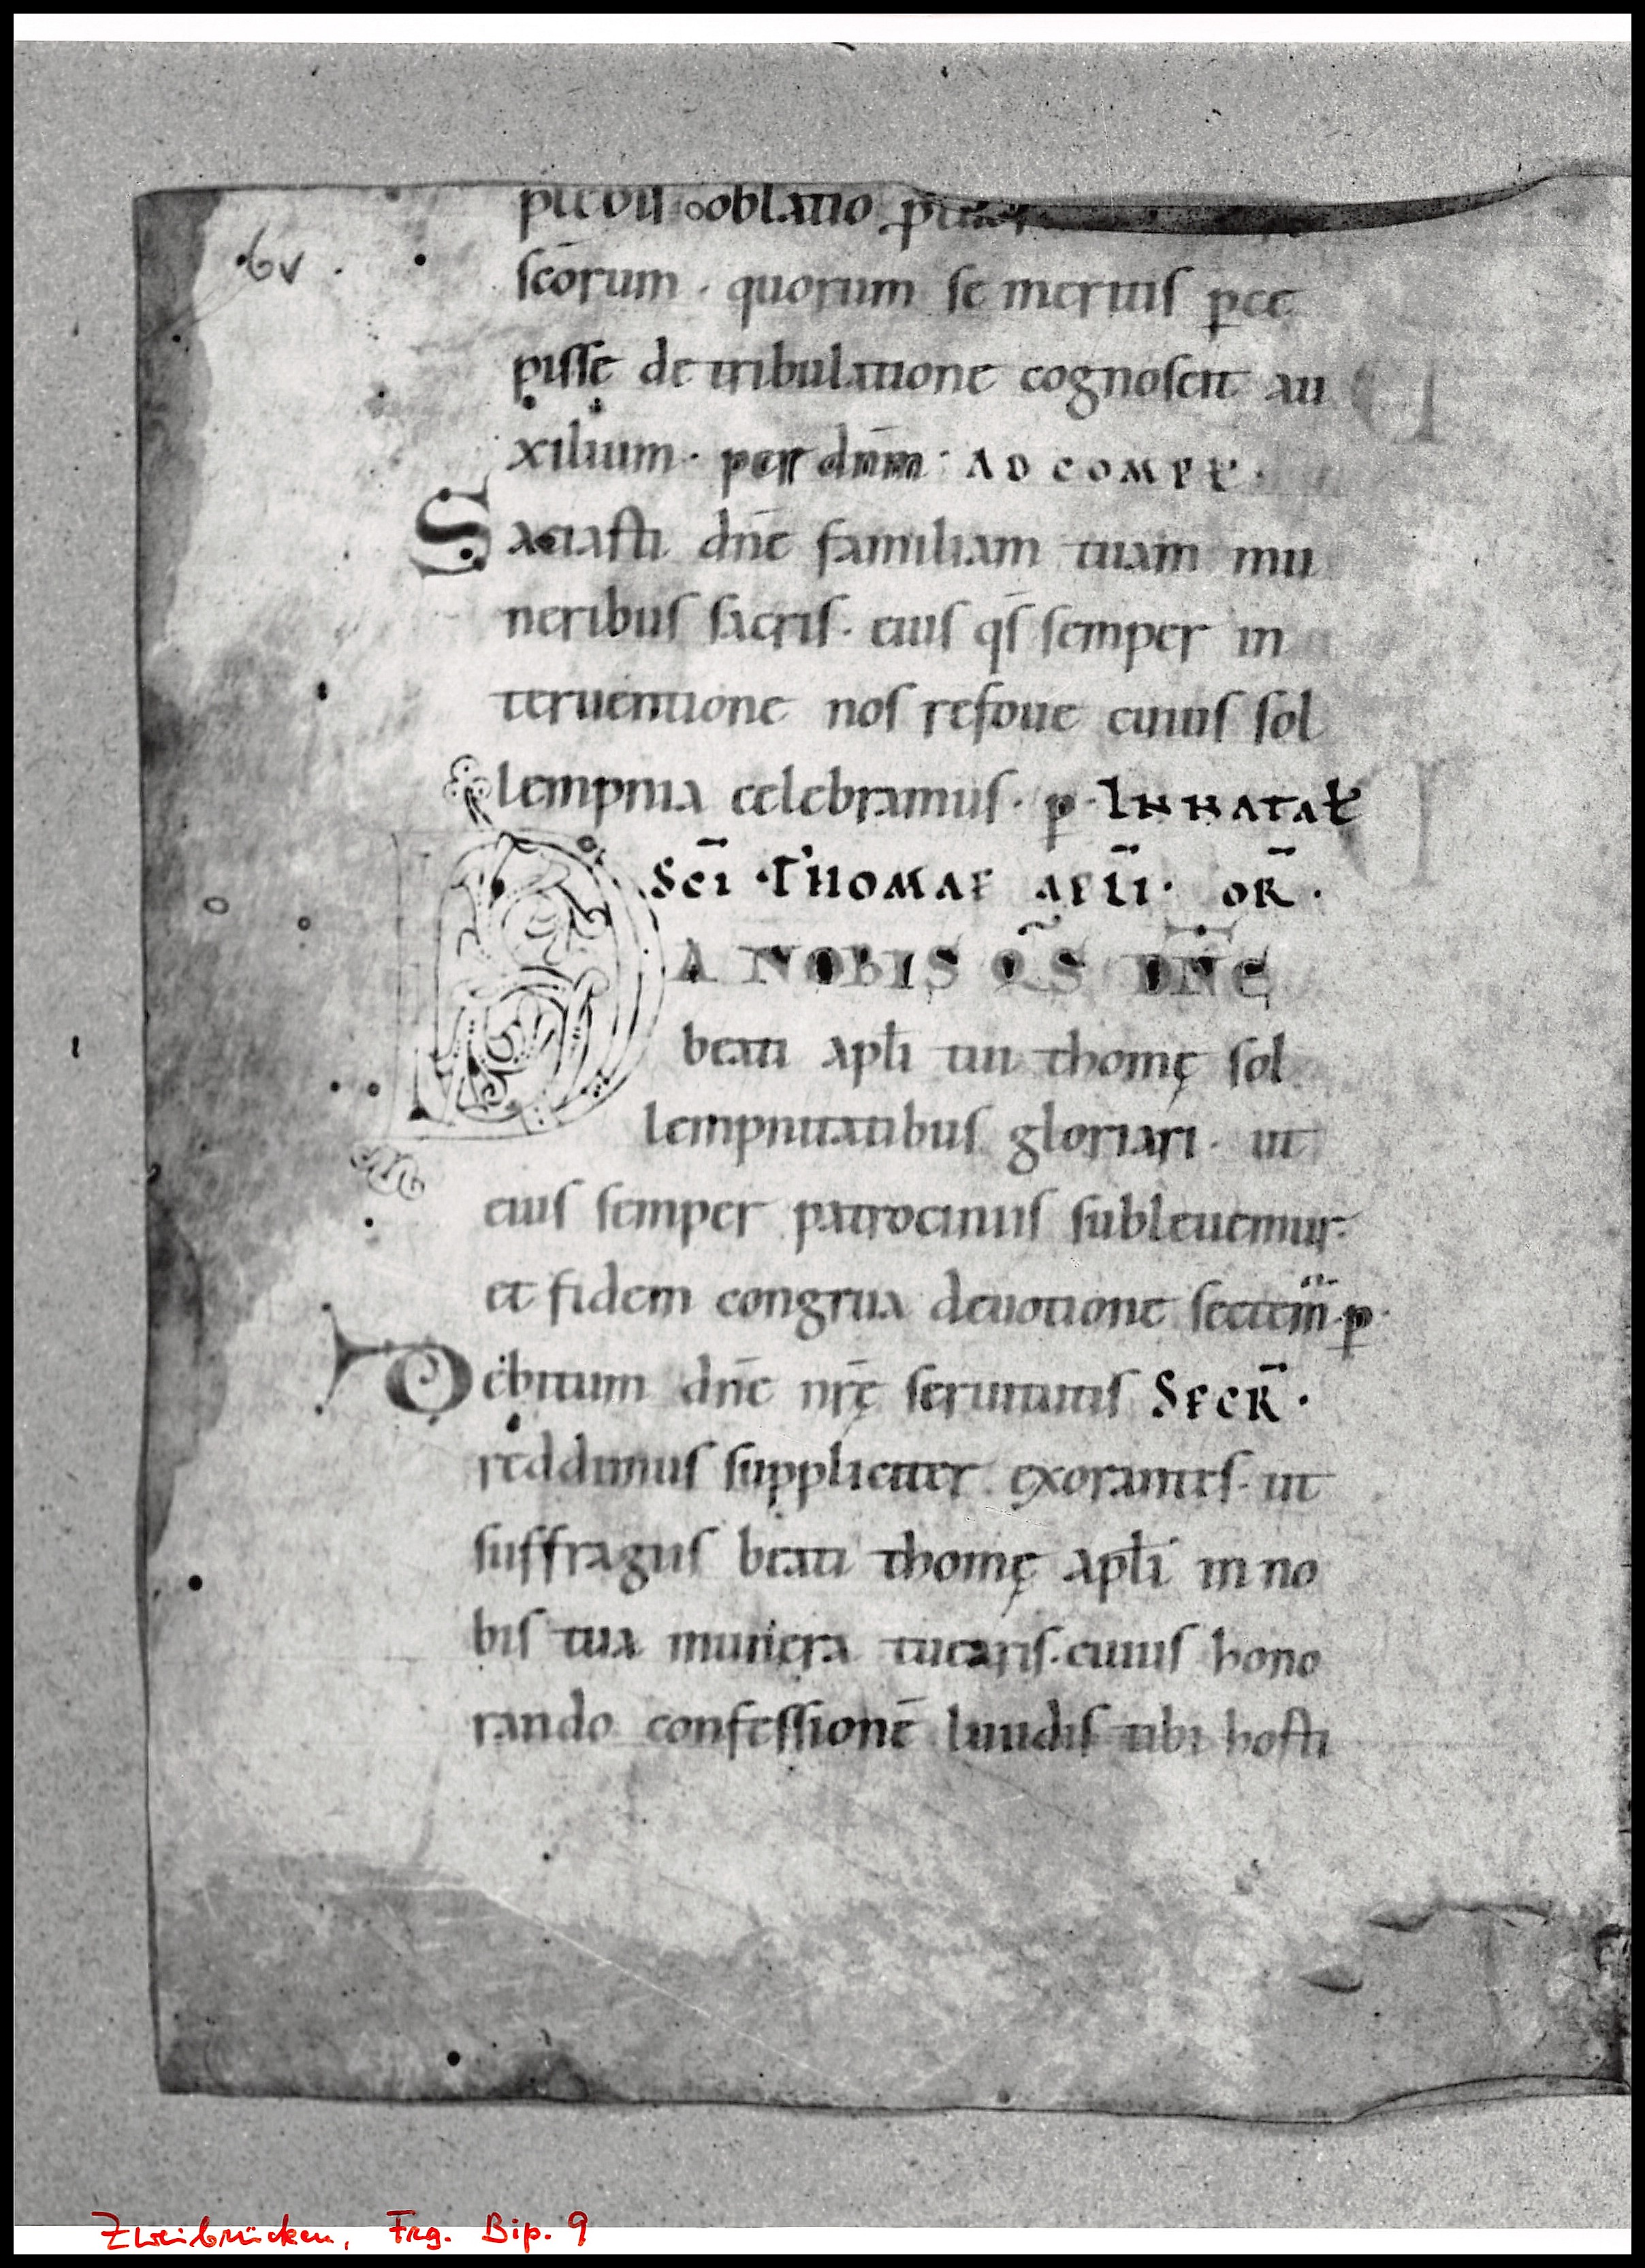 oblatio
6v
scōrum · quorum se meritis pce
pisse de tribulatione cognoscit au
xilium · per dn̄m · AD COMPŁ ·
Saciasti dn̄e familiam tuam mu
neribus sacris · eius qs̄ semper in
teruentione nos refoue cuius sol
lempnia celebramus · p · IN NATAŁ
SCĪ THOMAE APLĪ · OR̄ ·
DA NOBIS Q̄S DN̄E
beati apłi tui thomę sol
lempnitatibus gloriari · ut
eius semper patrociniis subleuemur ·
et fidem congrua deuotione sectem̄ · p ·
Debitum dn̄e nr̄ę seruitutis SECR̄ ·
reddimus suppliciter exorantes · ut
suffragiis beati thomę apłi in no
bis tua munera tuearis · cuius hono
rando confessionē laudis tibi hosti
Zweibrücken, Frg. Bip. 9